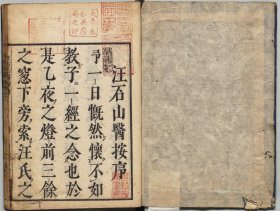 汪石山醫按序
予一日慨然懷不如
教子一經之念也於
是乙夜之燈前三餘
之窓下旁索汪氏之